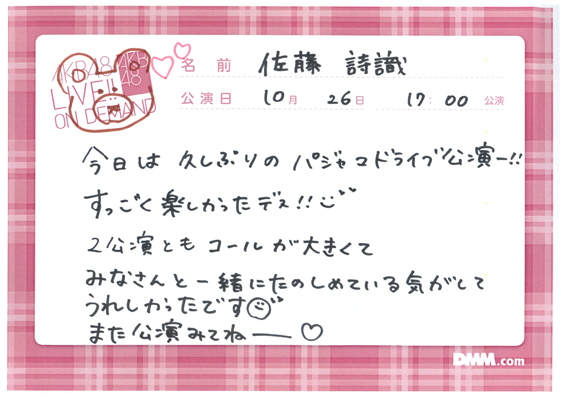 AKB48
AKB
48
LIVE!!
ON DEMAND
名 前 佐藤 詩識
公演日 10月 26日 17:00 公演
今日は 久しぶりの パジャマドライブ公演ー!!
すっごく楽しかったデス!!
2公演とも コールが大きくて
みなさんと一緒にたのしめている気がして
うれしかったです
また公演みてねー♡
DMM.com